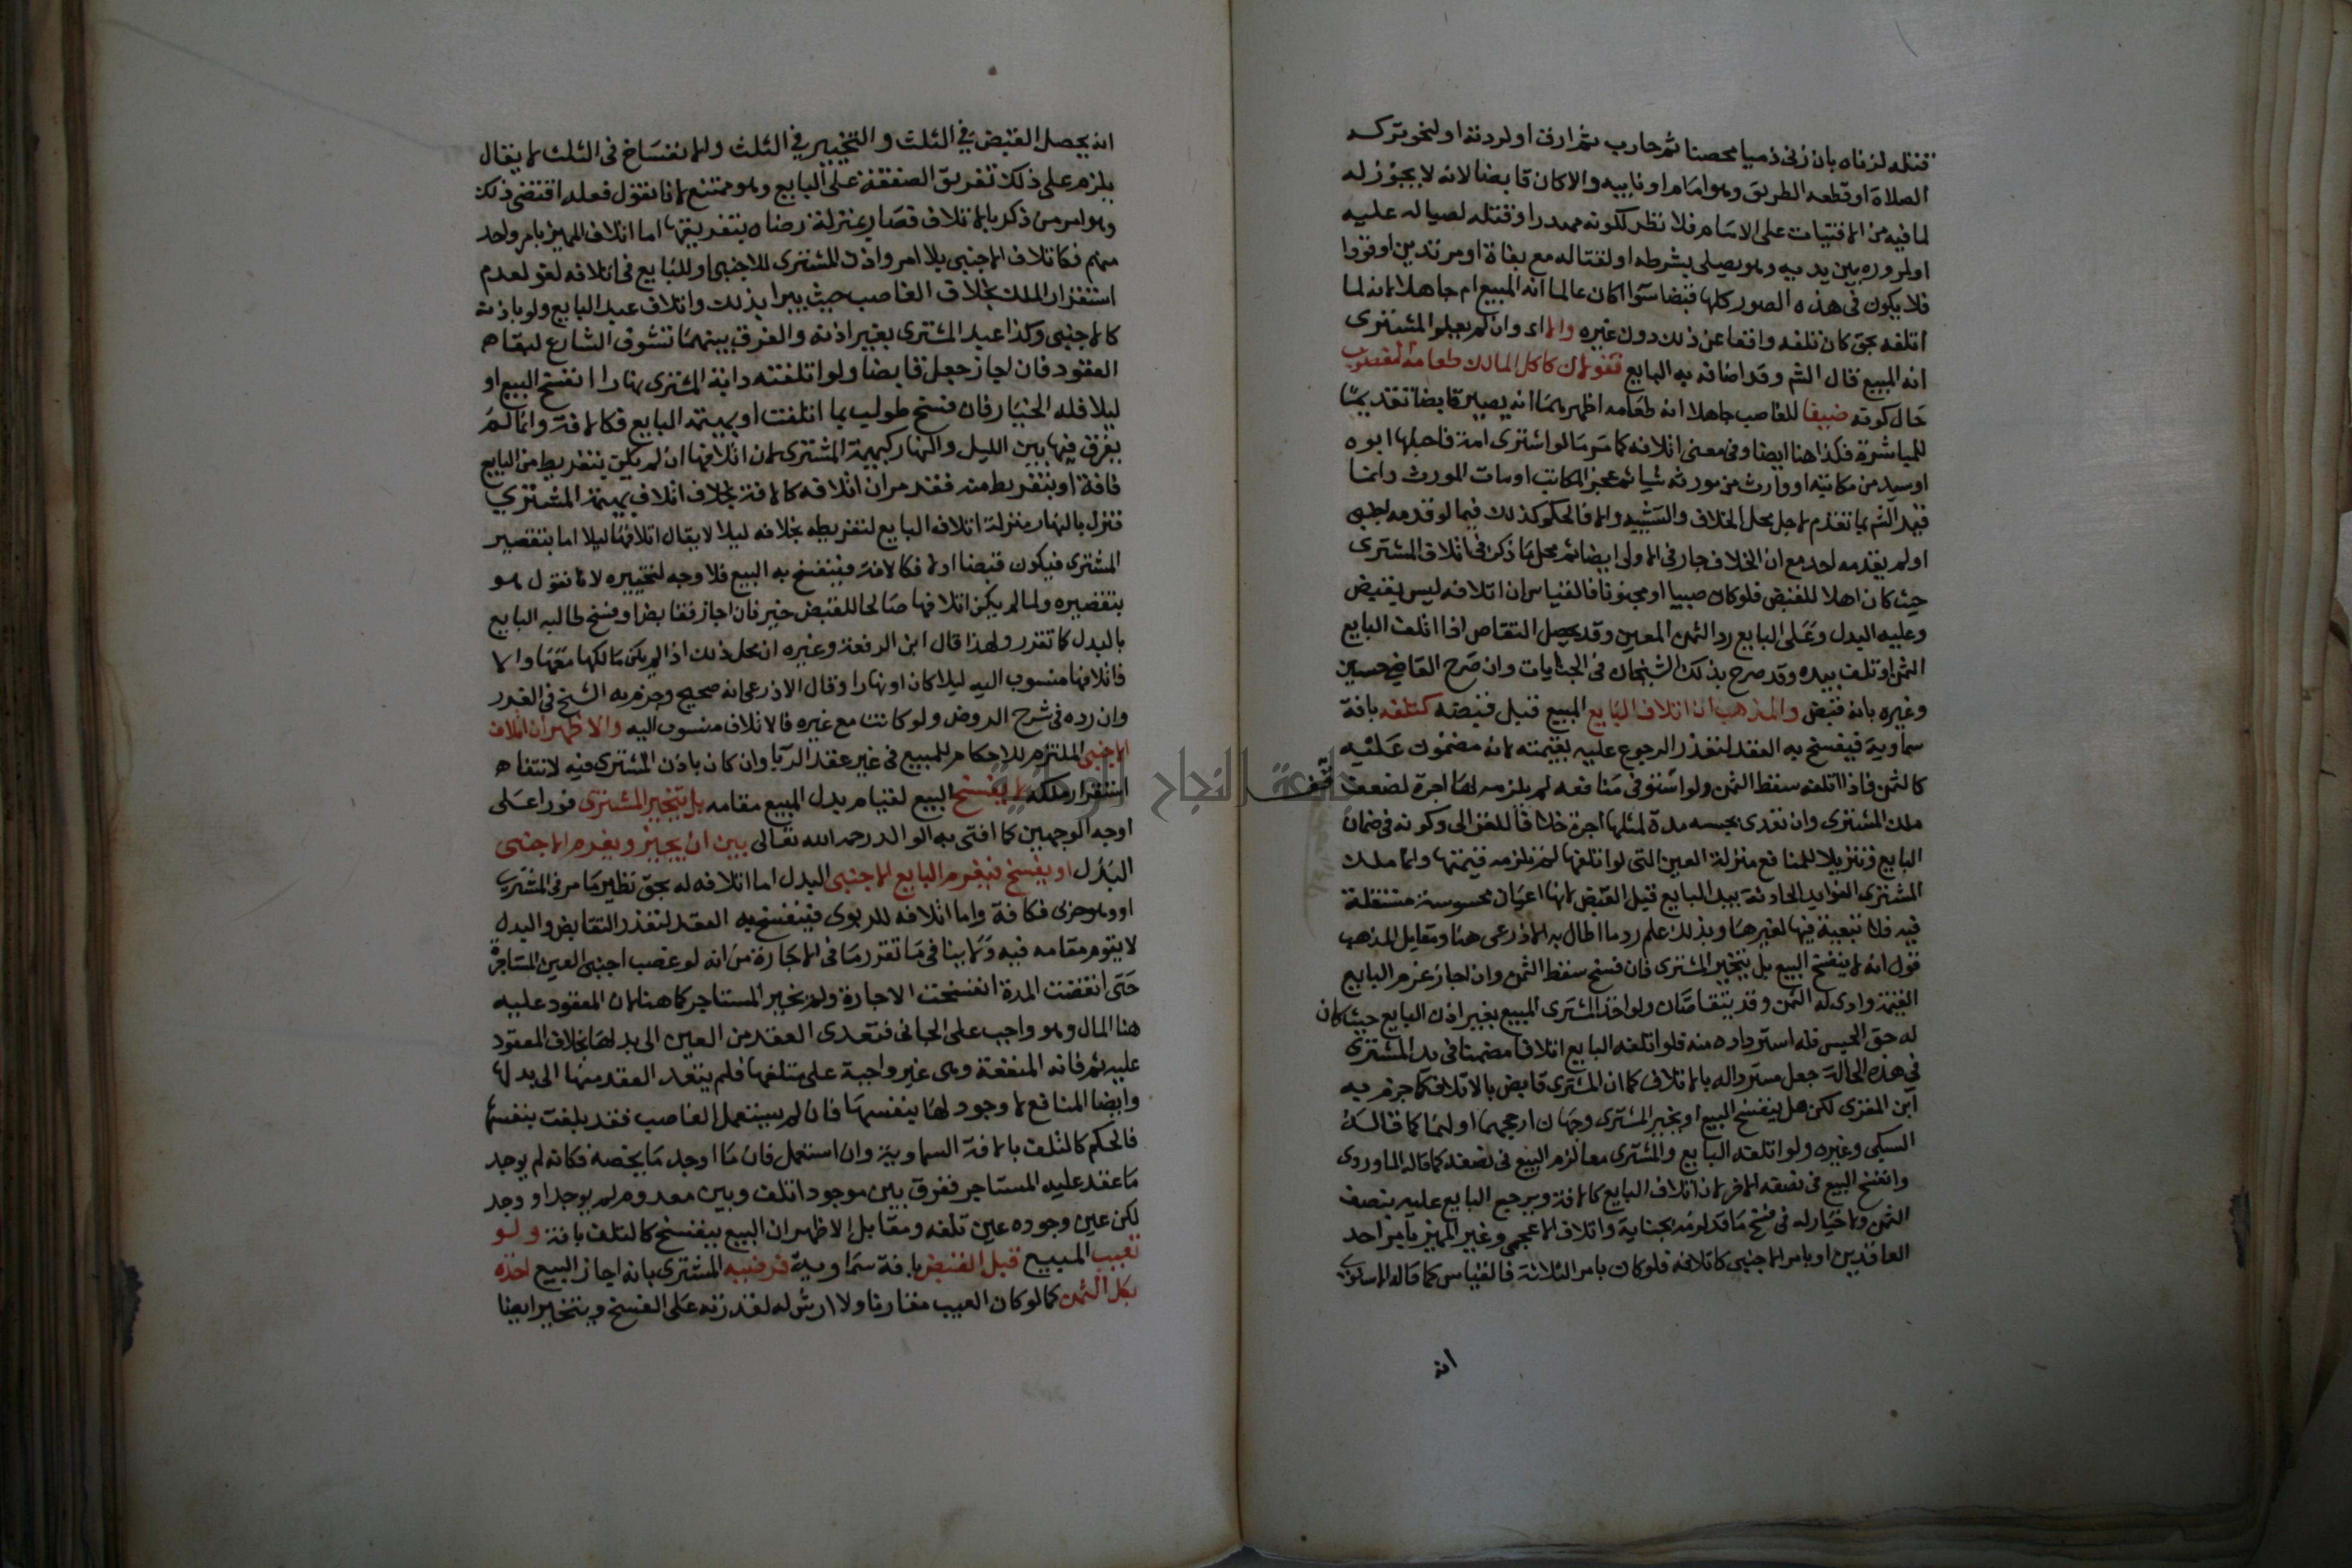 قتله لزناه بان زنى ذميا محصنا ثم حارب ثم ارق او لردته او لنحو تركه
الصلاة او قطعه الطريق وهو امام او نايبه والا كان قابضا لانه لا يجوز له
لما فيه من الافتيات على الامام فلا نظر لكونه مهدرا او قتله لصياله عليه
او لمروره بين يديه وهو يصلي بشرطه او لقتاله مع بغاة او مرتدين او قودا
فلا يكون في هذه الصور كلها قبضا سوا اكان عالما انه المبيع ام جاهلا لانه لما
اتلفه بحق كان تلفه واقعا عن ذلك دون غيره والا اى وان لم يعلم المشترى
انه المبيع قال الشم وقد اضافه به البايع فقولان كاكل المالك طعامه المغصوب
حال كونه ضيفا للغاصب جاهلا انه طعامه اظهرهما انه يصير قابضا تقديما
للمباشرة فكذا هنا ايضا وفي معنى اتلافه كما مر ما لو اشترى امة فاحبلها ابوه
او سيد من مكاتبه او وارث من مورثه شيا ثم عجز المكاتب او مات المورث وانما
قيد الشم بما تقدم لاجل محل الخلاف والتشبيه والا فالحكم كذلك فيما لو قدمه اجنبى
او لم يقدمه احد مع ان الخلاف جار في الاولى ايضا ثم محل ما ذكر في اتلاف المشترى
حيث كان اهلا للقبض فلو كان صبيا او مجنونا فالقياس ان اتلافه ليس بقبض
وعليه البدل وعلى البايع رد الثمن المعين وقد يحصل التقاص اذا اتلف البايع
الثمن او تلف بيده وقد صرح بذلك الشيخان في الجنايات وان صرح القاضي حسين
وغيره بانه قبض والمذهب ان اتلاف البايع المبيع قبل قبضه كتلفه بافة
سماوية فينفسخ به العقد لتعذر الرجوع عليه بقيمته لانه مضمون عليه
كالثمن فاذا اتلفه سقط الثمن ولو استوفى منافعه لم يلزمه لها اجرة لضعف
ملك المشترى وان تعدى بحبسه مدة لمثلها اجرة خلافا للغزالى وكونه في ضمان
البايع وتنزيلا للمنافع منزلة العين التى لو اتلفها لم تلزمه قيمتها وانما ملك
المشترى الفوايد الحادثة بيد البايع قبل القبض لانها اعيان محسوسة مستقلة
فيه فلا تبعية فيها لغيرها وبذلك علم رد ما اطال به الاذرعى هنا ومقابل المذهب
قول انه لا ينفسخ البيع بل يتخير المشترى فان فسخ سقط الثمن وان اجاز غرم البايع
القيمة وادى له الثمن وقد يتقاصان ولو اخذ المشترى المبيع بغير اذن البايع حيث كان
له حق الحبس فله استرداده منه فلو اتلفه البايع اتلافا مضمنا في يد المشترى
في هذه الحالة جعل مستردا له بالاتلاف كما ان المشترى قابض بالاتلاف كما جزم به
ابن المقرى لكن هل ينفسخ البيع او يخير المشترى وجهان ارجحهما اولهما كما قاله
السبكى وغيره ولو اتلفه البايع والمشترى معا لزم البيع في نصفه كما قاله الماوردى
وانفسخ البيع في نصفه الاخر لان اتلاف البايع كالافة ويرجع البايع عليه بنصف
الثمن ولا خيار له في فسخ ما قد لزمه بجنايته واتلاف الاعجمى وغير المميز بامر احد
العاقدين او بامر الاجنبى كاتلافه فلو كان بامر الثلاثة فالقياس كما قاله الاسنوى
انه
انه يحصل القبض في الثلث والتخيير في الثلث والانفساخ في الثلث لا يقال
يلزم على ذلك تفريق الصفقة على البايع وهو ممتنع لانا نقول فعله اقتضى ذلك
وهو امر من ذكر بالاتلاف فصار بمنزلة رضاه بتفريقها اما اتلاف المميز بامر واحد
منهم فكاتلاف الاجنبى بلا امر واذن المشترى للاجنبى او للبايع في اتلافه لغو لعدم
استقرار الملك بخلاف الغاصب حيث يبرا بذلك واتلاف عبد البايع ولو باذنه
كالاجنبى وكذا عبد المشترى بغير اذنه والفرق بينهما تشوف الشارع لبقاء
العقود فان اجاز جعل قابضا ولو اتلفته دابة المشترى نهارا انفسخ البيع او
ليلا فله الخيار فان فسخ طولب بما اتلفت او بهيمة البايع فكالافة وانما لم
يفرق فيها بين الليل والنهار كبهيمة المشترى لان اتلافها ان لم يكن بتفريط من البايع
فافة او بتفريط منه فقد مر ان اتلافه كالافة بخلاف اتلاف بهيمة المشتري
فنزل بالنهار منزلة اتلاف البايع لتفريطه بخلافه ليلا لا يقال اتلافها ليلا اما بتقصير
المشترى فيكون قبضا اولا فكالافة فينفسخ به البيع فلا وجه لتخييره لانا نقول هو
بتقصيره ولما لم يكن اتلافها صالحا للقبض خير فان اجاز فقابض او فسخ طالبه البايع
بالبدل كما تقرر ولهذا قال ابن الرفعة وغيره ان محل ذلك اذا لم يكن مالكها معها والا
فاتلافها منسوب اليه ليلا كان او نهارا وقال الاذرعى انه صحيح وجزم به الشيخ في الغرر
وان رده في شرح الروض ولو كانت مع غيره فالاتلاف منسوب اليه والاظهر ان اتلاف
الاجنبى الملتزم للاحكام للمبيع في غير عقد الربا وان كان باذن المشترى فيه لانتفاء
استقرار ملكه لا يفسخ البيع لقيام بدل المبيع مقامه بل يتخير المشترى فورا على
اوجه الوجهين كما افتى به الوالد رحمه الله تعالى بين ان يجيز ويغرم الاجنبى
البدل او يفسخ فيغرم البايع الاجنبى البدل اما اتلافه له بحق نظير ما مر في المشترى
او وهو حربى فكافة واما اتلافه للربوى فينفسخ به العقد لتعذر التقابض والبدل
لا يقوم مقامه فيه ولا ينافى ما تقرر ما في الاجارة من انه لو غصب اجنبى العين المستاجرة
حتى انقضت المدة انفسخت الاجارة ولم يخير المستاجر كما هنا لان المعقود عليه
هنا المال وهو واجب على الجانى فتعدى العقد من العين الى بدلها بخلاف المعقود
عليه ثم فانه المنفعة وهى غير واجبة على متلفها فلم يتعد العقد منها الى بدلها
وايضا المنافع لا وجود لها بنفسها فان لم يستعمل الغاصب فقد تلفت بنفسها
فالحكم كالتلف بالافة السماوية وان استعمل فان ما اوجد ما يخصه فكانه لم يوجد
ما عقد عليه المستاجر ففرق بين موجود اتلف وبين معدوم لم يوجد او وجد
لكن عين وجوده عين تلفه ومقابل الاظهر ان البيع ينفسخ كالتلف بافة ولو
تعيب المبيع قبل القبض بافة سماوية فرضيه المشترى بان اجاز البيع اخذه
بكل الثمن كما لو كان العيب مقارنا ولا ارش له لقدرته على الفسخ ويتخير ايضا
جامعة النجاح الوطنية